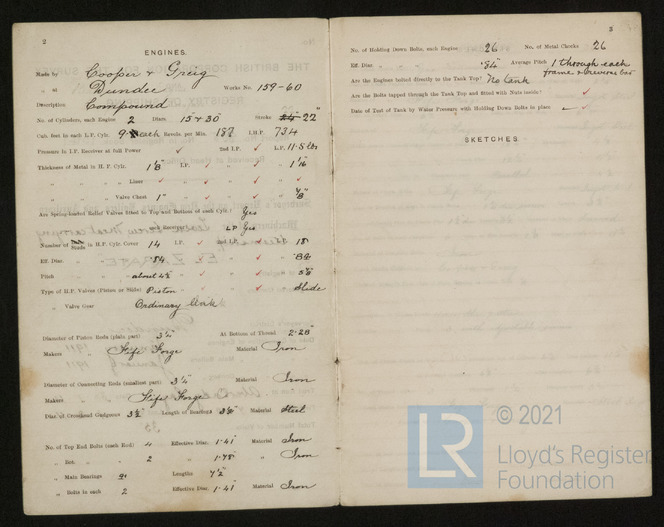 2
ENGINES.
Made by Cooper & Greig
„ at Dundee Works No. 159-60
Description Compound
No. of Cylinders, each Engine 2 Diars. 15" & 30" Stroke 22"
Cub. feet in each L.P. Cylr. 9. each Revols. per Min. 182 I.H.P. 734
Pressure in I.P. Receiver at full Power ✓ 2nd I.P. ✓ L.P. 11.5 lbs
Thickness of Metal in H.P. Cylr. I.P. ✓ „ ✓ „
„ „ Liner ✓ „ ✓ „ ✓ „ ✓
„ „ Valve Chest 1" „ ✓ „ ✓ „
Are Spring-loaded Relief Valves fitted to Top and Bottom of each Cylr.? Yes
„ „ each Receiver? LP Yes
Number of Studs in H.P. Cylr. Cover 14 I.P. ✓ 2nd I.P. ✓ L.P. 18
Eff. Diar. „ .84 „ ✓ „ ✓ „ .84
Pitch „ about „ ✓ „ ✓ „
Type of H.P. Valves (Piston or Slide) Piston „ ✓ „ ✓ „ Slide
„ Valve Gear Ordinary link
Diameter of Piston Rods (plain part) At Bottom of Thread 2.28"
Makers „ Fife Forge Material Iron
Diameter of Connecting Rods (smallest part) 3¼" Material Iron
Makers „ Fife Forge
Diar. of Crosshead Gudgeons Length of Bearings Material Steel
No. of Top End Bolts (each Rod) 4 Effective Diar. 1.41 Material Iron
„ Bot. „ „ 2 „ 1.78" „ Iron
„ Main Bearings Lengths 4½
„ Bolts in each 2 Effective Diar. 1.41 Material Iron
3
No. of Holding Down Bolts, each Engine 26 No. of Metal Chocks 26
Eff. Diar. „ „ „ .84 Average Pitch 1 through each
Are the Engines bolted directly to the Tank Top? No tank frame & Reverse bar
Are the Bolts tapped through the Tank Top and fitted with Nuts inside? ✓
Date of Test of Tank by Water Pressure with Holding Down Bolts in place ✓
SKETCHES.
LR
© 2021
Lloyd's Register
Foundation